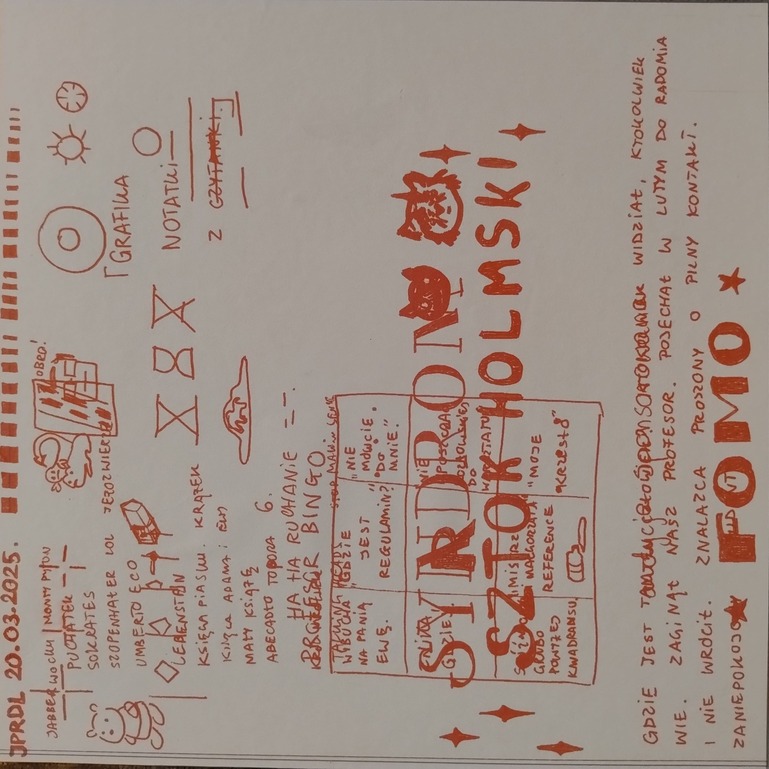 JPRDL 20.03.2025.
JABBERWOCKY | MONTY PYTON
PUCHATEK
SOKRATES
SZOPENHAUER LOL
UMBERTO ECO
LEBENSTEIN
KSIĘGA PIASKU. KRĄŻEK
KSIĘGA ADAMA I EWY
MAŁY KSIĄŻĘ
ABECADŁO TOPORA
6.
JEŻOZWIERZ
DOBRO!
GRAFIKA
NOTATKI
Z CZYTANKI.
HA HA RUCHANIE
PROFESOR BINGO.
WYBUCHA
NA PANIĄ
EWĘ.
"GDZIE
JEST
REGULAMIN?"
"NIE
MÓWCIE
DO
MNIE."
GDZIEŚ
NIE
DO
GRUBO
POWYŻEJ
KWADRANSU
MISTRZ
MAŁGORZATA
REFERENCE
"MOJE
KRZESŁO"
SYNDROM
SZTOKHOLMSKI
GDZIE JEST WIDZIAŁ, KTOKOLWIEK
WIE. ZAGINĄŁ NASZ PROFESOR. POJECHAŁ W LUTYM DO RADOMIA
I NIE WRÓCIŁ. ZNALAZCA PROSZONY O PILNY KONTAKT.
ZANIEPOKOJONY
FOMO